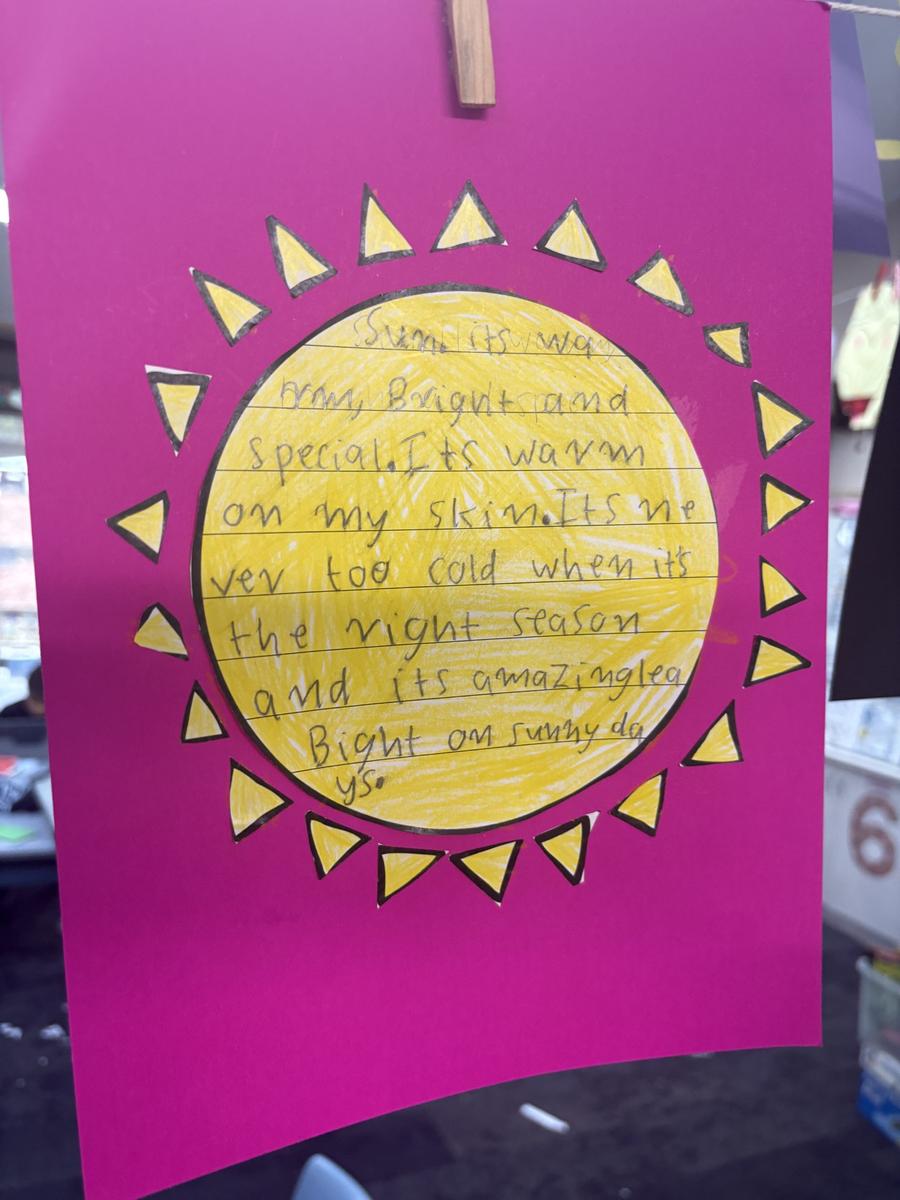 Sun. its wa
rm, Bright and
special. Its warm
on my skin. Its ne
ver too cold when it's
the right season
and its amazinglea
Bight on sunny da
ys.
6